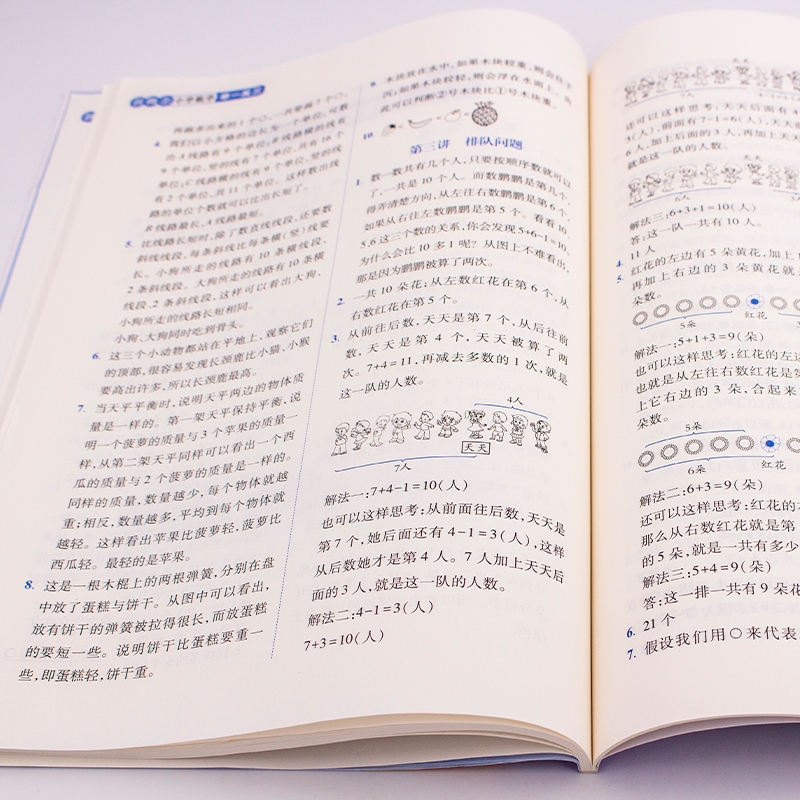 小学数学
再画多出来的1个○,一共要画7个○。
4. 我们以小方格的边长为一个单位,可数
出A线路有9个单位;B线路横的有
9个单位,竖的有7个单位,共有16个
单位;C线路横的有9个单位,竖的
有2个单位,共11个单位。这样数出线
路的单位个数就可以比出长短了。
B线路最长,A线路最短。
5. 比线路长短时,除了数直线线段,还要数
斜线线段,每条斜线比每条横(竖)线要
长。小狗所走的线路有10条横线段、
2条斜线段。大狗所走的线路有10条横
线段、2条斜线段,这样可以看出大狗、
小狗所走的线路长短相同。
小狗、大狗同时吃到骨头。
6. 这三个小动物都站在平地上,观察它们
的顶部,很容易发现长颈鹿比小猫、小猴
要高出许多,所以长颈鹿最高。
7. 当天平平衡时,说明天平两边的物体质
量是一样的。第一架天平保持平衡,说
明一个菠萝的质量与3个苹果的质量一
样,从第二架天平同样可以看出一个西
瓜的质量与2个菠萝的质量是一样的。
同样的质量,数量越少,每个物体就越
重;相反,数量越多,平均到每个物体就
越轻。这样看出苹果比菠萝轻,菠萝比
西瓜轻。最轻的是苹果。
8. 这是一根木棍上的两根弹簧,分别在盘
中放了蛋糕与饼干。从图中可以看出,
放有饼干的弹簧被拉得很长,而放蛋糕
的要短一些。说明饼干比蛋糕要重一
些,即蛋糕轻,饼干重。
9. 木块放在水中,如果木块较重,则会往下
沉;如果木块较轻,则会浮在水面上。由
此可以判断②号木块比①号木块重。
10.
第三讲 排队问题
1. 数一数共有几个人,只要按顺序数就可以
了,一共是10个人。而数鹏鹏是第几个,
得弄清楚方向,从左往右数鹏鹏是第6个,
如果从右往左数鹏鹏是第5个。看看10、
5、6这三个数的关系,你会发现5+6-1=10。
为什么会比10多1呢?从图上不难看出,
那是因为鹏鹏被算了两次。
2. 一共10朵花;从左数红花在第6个,从
右数红花在第5个。
3. 从前往后数,天天是第7个,从后往前
数,天天是第4个,天天被算了两
次。7+4=11,再减去多数的1次,就是
这一队的人数。
4人
天天
7人
解法一:7+4-1=10(人)
也可以这样思考:从前面往后数,天天是
第7个,她后面还有4-1=3(人),这样
从后数她才是第4人。7人加上天天后
面的3人,就是这一队的人数。
解法二:4-1=3(人)
7+3=10(人)
天天
还可以这样思考:天天后面有4
3(人),前面有7-1=6(人),天天
6人,加上后面的3人,再加上天天
就是这一队的人数。
天天
6人
解法三:6+3+1=10(人)
答:这一队一共有10人。
4. 11人
5. 红花的左边有5朵黄花,加上
再加上右边的3朵黄花就是
朵数。
5朵 红花
解法一:5+1+3=9(朵)
也可以这样思考:红花的左边
也就是从左往右数红花是第
上它右边的3朵,合起来
朵数。
5朵
6朵 红花
解法二:6+3=9(朵)
还可以这样思考:红花的
那么从右数红花就是第
的5朵,就是一共有多少
解法三:5+4=9(朵)
答:这一排一共有9朵花
6. 21个
7. 假设我们用○来代表